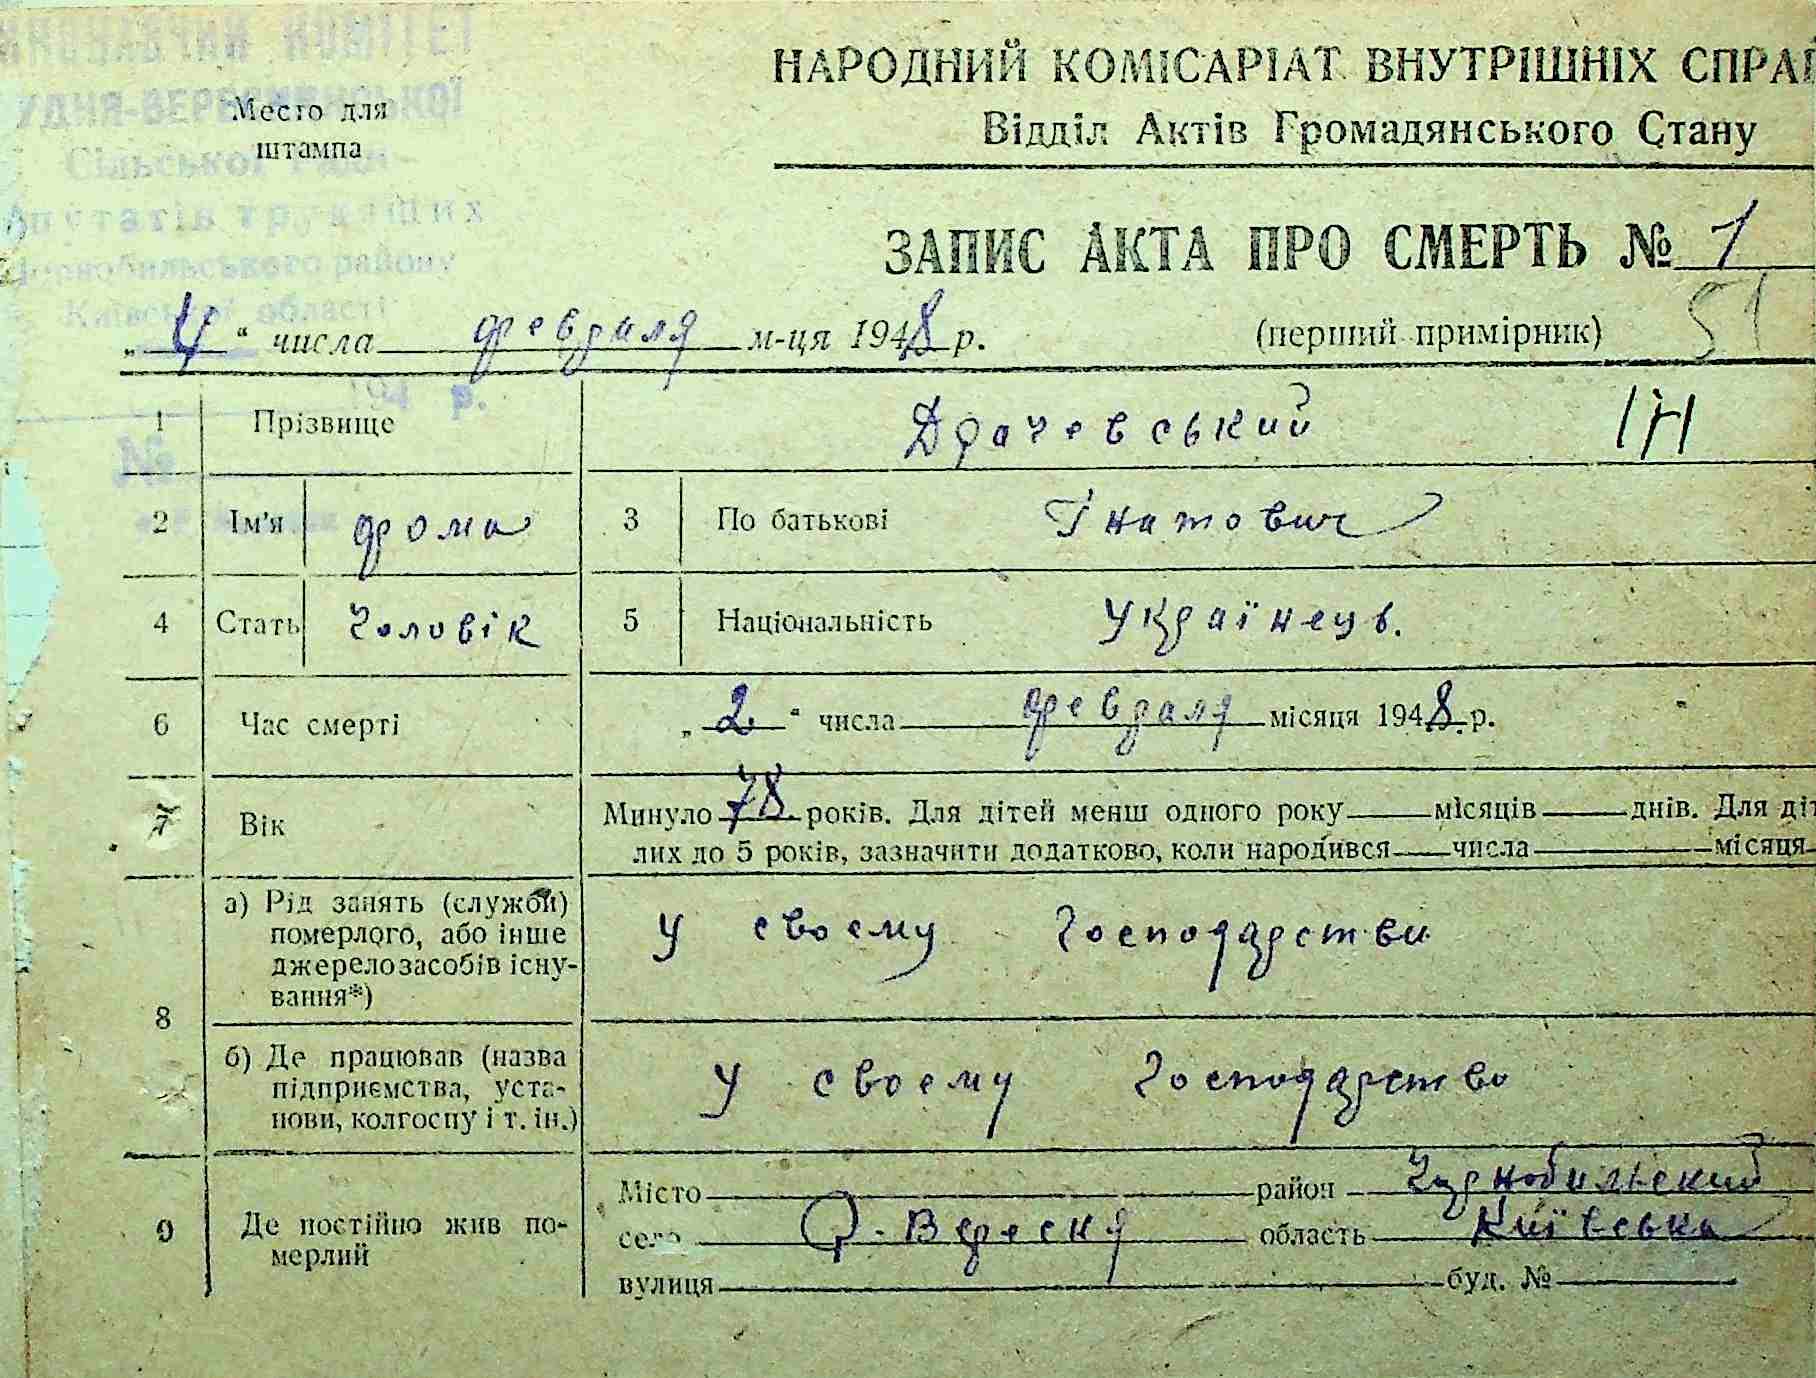 КОМІТЕТ
Сільської Ради
трудящих
Чорнобильського району
Київської області
194 р.
№
Место для
штампа
НАРОДНИЙ КОМІСАРІАТ ВНУТРІШНІХ СПРА
Відділ Актів Громадянського Стану
ЗАПИС АКТА ПРО СМЕРТЬ № 1
„ 4 “ числа февраля м-ця 1948 р. (перший примірник) 51
1 Прізвище Драчевський ІН
2 Ім'я фома 3 По батькові Ігнатович
4 Стать Чоловік 5 Національність Українець.
6 Час смерті „ 2 “ числа февраля місяця 1948 р.
7 Вік Минуло 78 років. Для дітей менш одного року місяців днів. Для ді
лих до 5 років, зазначити додатково, коли народився числа місяця
8 а) Рід занять (служби)
померлого, або інше
джерело засобів існу-
вання*) У своему господарстви
б) Де працював (назва
підприємства, уста-
нови, колгоспу і т. ін.) У своему господарство
9 Де постійно жив по-
мерлий
Місто район Чорнобильский
село Р. Вересня область Київська
вулиця буд. №